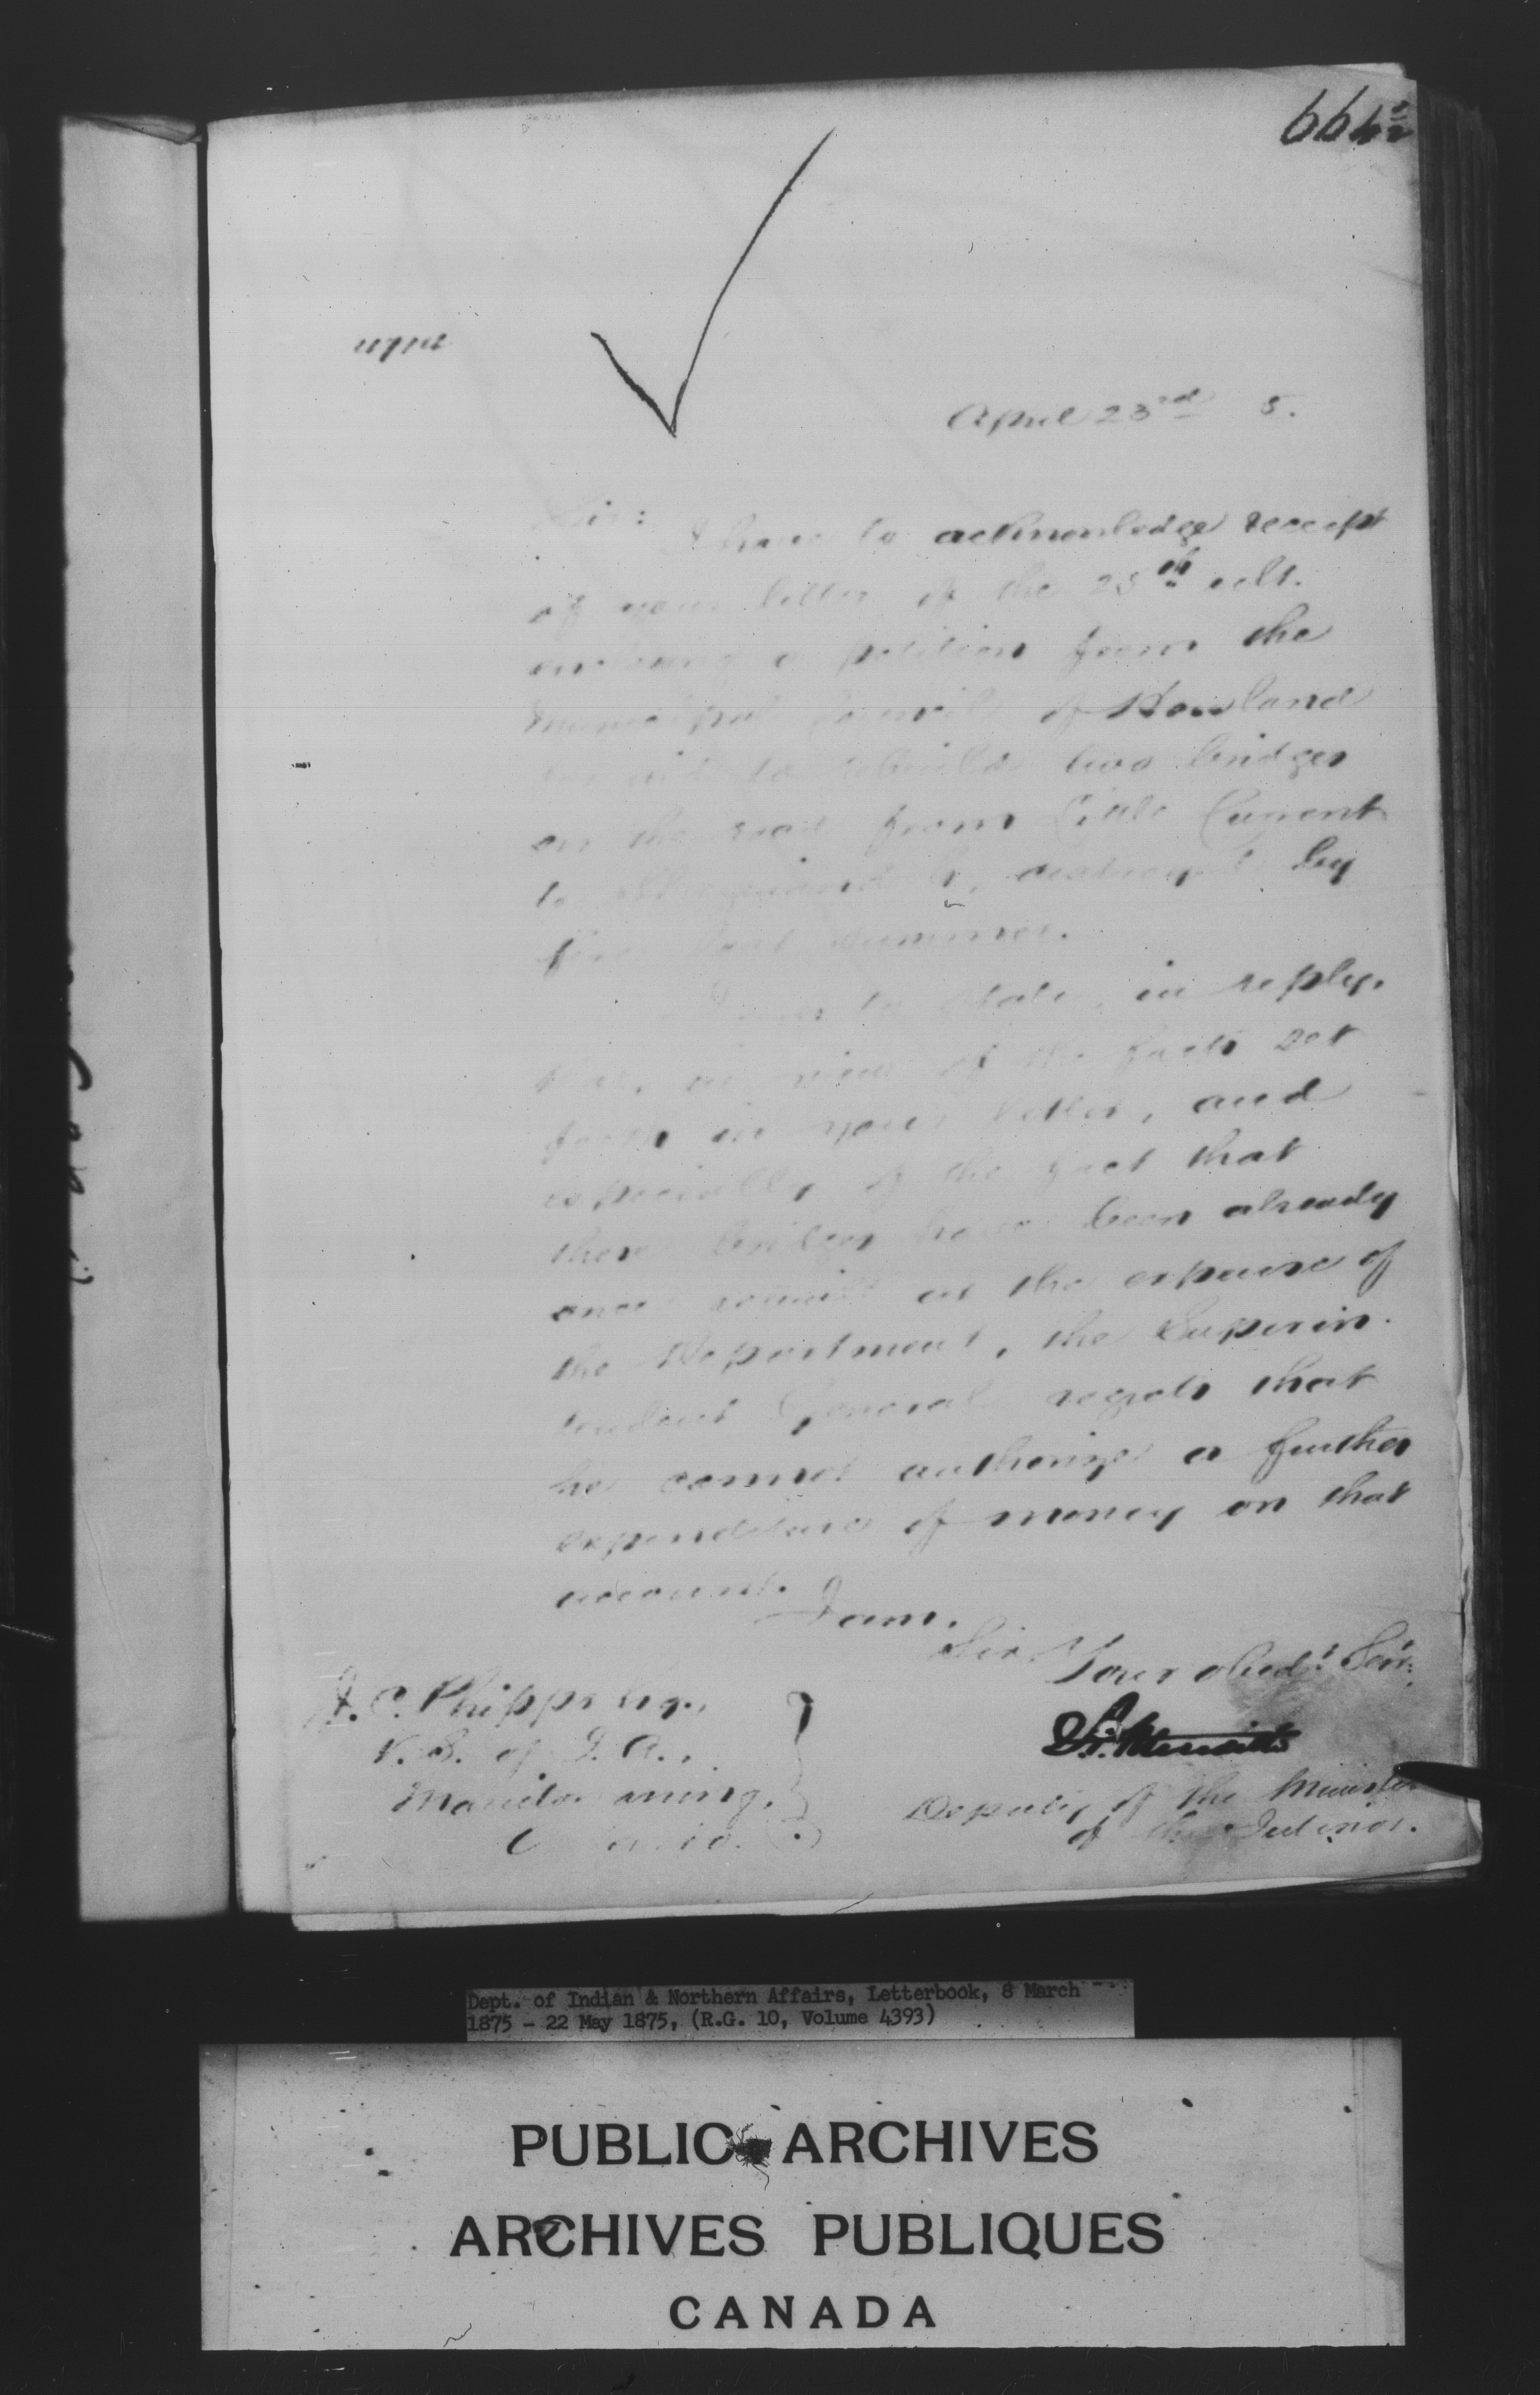 664½
April 23rd 5.
Sir:
I have to acknowledge receipt
of your letter of the 25th ult.
enclosing a petition from the
Municipal Council of Howland
for aid to rebuild two bridges
on the road from Little Current
to destroyed by
fire last summer.
I have to state, in reply,
that, in view of the facts set
forth in your letter, and
especially of the fact that
these bridges have been already
once rebuilt at the expense of
the Department, the Superin-
tendent General regrets that
he cannot authorize a further
expenditure of money on that
account.
I am,
Sir
Your obedt Servt
J. C. Phipps Esq.,
V. S. of I. A.,
Manitowaning,
Ontario.
Deputy of the Minister
of the Interior.
Dept. of Indian & Northern Affairs, Letterbook, 8 March
1875 - 22 May 1875, (R.G. 10, Volume 4393)
PUBLIC ARCHIVES
ARCHIVES PUBLIQUES
CANADA